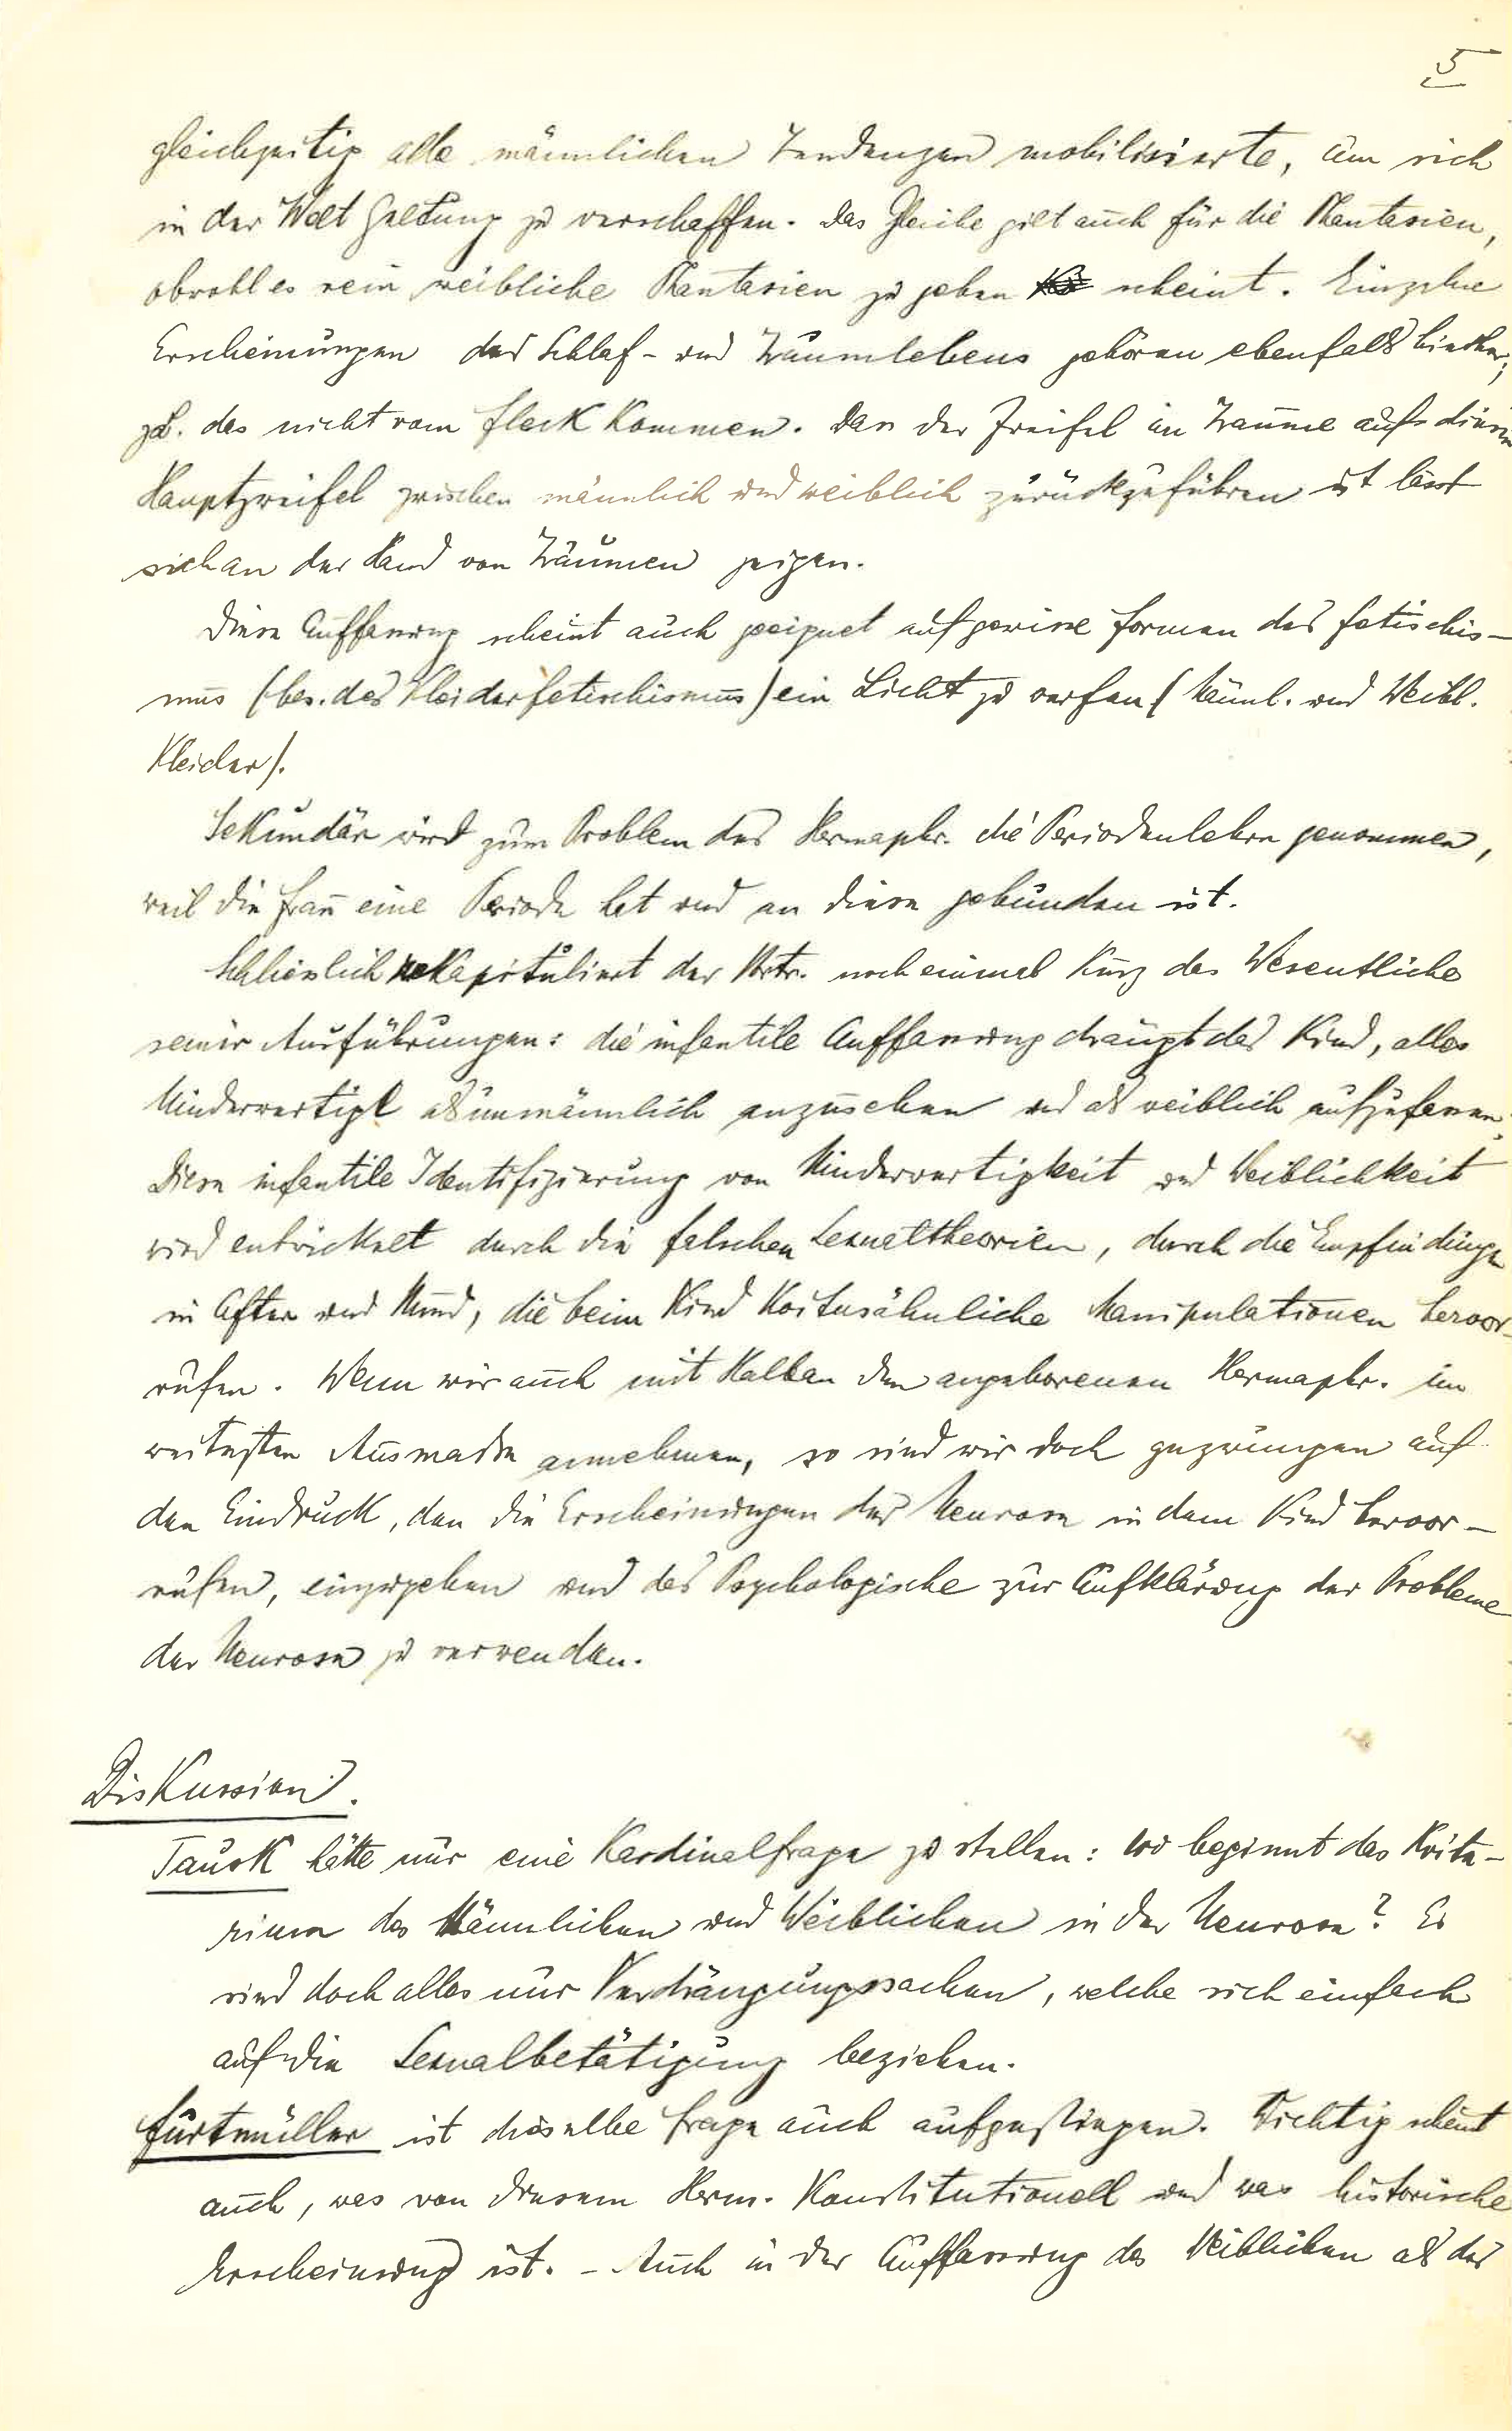 5
gleichzeitig alle männlichen Tendenzen mobilisierte, um sich
in der Welt Geltung zu verschaffen. Das Gleiche gilt auch für die Phantasien,
obwohl es rein weibliche Phantasien zu geben scheint. Einzelne
Erscheinungen des Schlaf- und Traumlebens gehören ebenfalls hierher;
zB. das nicht vom Fleck Kommen. Dass der Zweifel im Traume auf diesen
Hauptzweifel zwischen männlich und weiblich zurückzuführen ist lässt
sich an der Hand von Träumen zeigen.
Diese Auffassung scheint auch geeignet auf gewisse Formen des Fetischis-
mus (bes. des Kleiderfetischismus) ein Licht zu werfen (Männl. und Weibl.
Kleider).
Sekundär wird zum Problem des Hermaphr. die Periodenlehre genommen,
weil die Frau eine Periode hat und an diese gebunden ist.
Schliesslich rekapituliert der Vortr. noch einmal kurz das Wesentliche
seiner Ausführungen: die infantile Auffassung drängt das Kind, alles
Minderwertige als unmännlich anzusehen und als weiblich aufzufassen.
Diese infantile Identifizierung von Minderwertigkeit und Weiblichkeit
wird entwickelt durch die falschen Sexualtheorien, durch die Empfindungen
in After und Mund, die beim Kind Koitusähnliche Manipulationen hervor-
rufen. Wenn wir auch mit Halban den angeborenen Hermaphr. im
weitesten Ausmasse annehmen, so sind wir doch gezwungen auf
den Eindruck, den die Erscheinungen der Neurose in dem Kind hervor-
rufen, einzugehen und das Psychologische zur Aufklärung der Probleme
der Neurose zu verwenden.
Diskussion.
Tausk hätte nur eine Kardinalfrage zu stellen: wo beginnt das Krite-
rium des Männlichen und Weiblichen in der Neurose? Es
sind doch alles nur Verdrängungssachen, welche sich einfach
auf die Sexualbetätigung beziehen.
Furtmüller ist dieselbe Frage auch aufgestiegen. Wichtig scheint
auch, was von diesem Herm. Konstitutionell und was historische
Erscheinung ist. - Auch in der Auffassung des Weiblichen als des